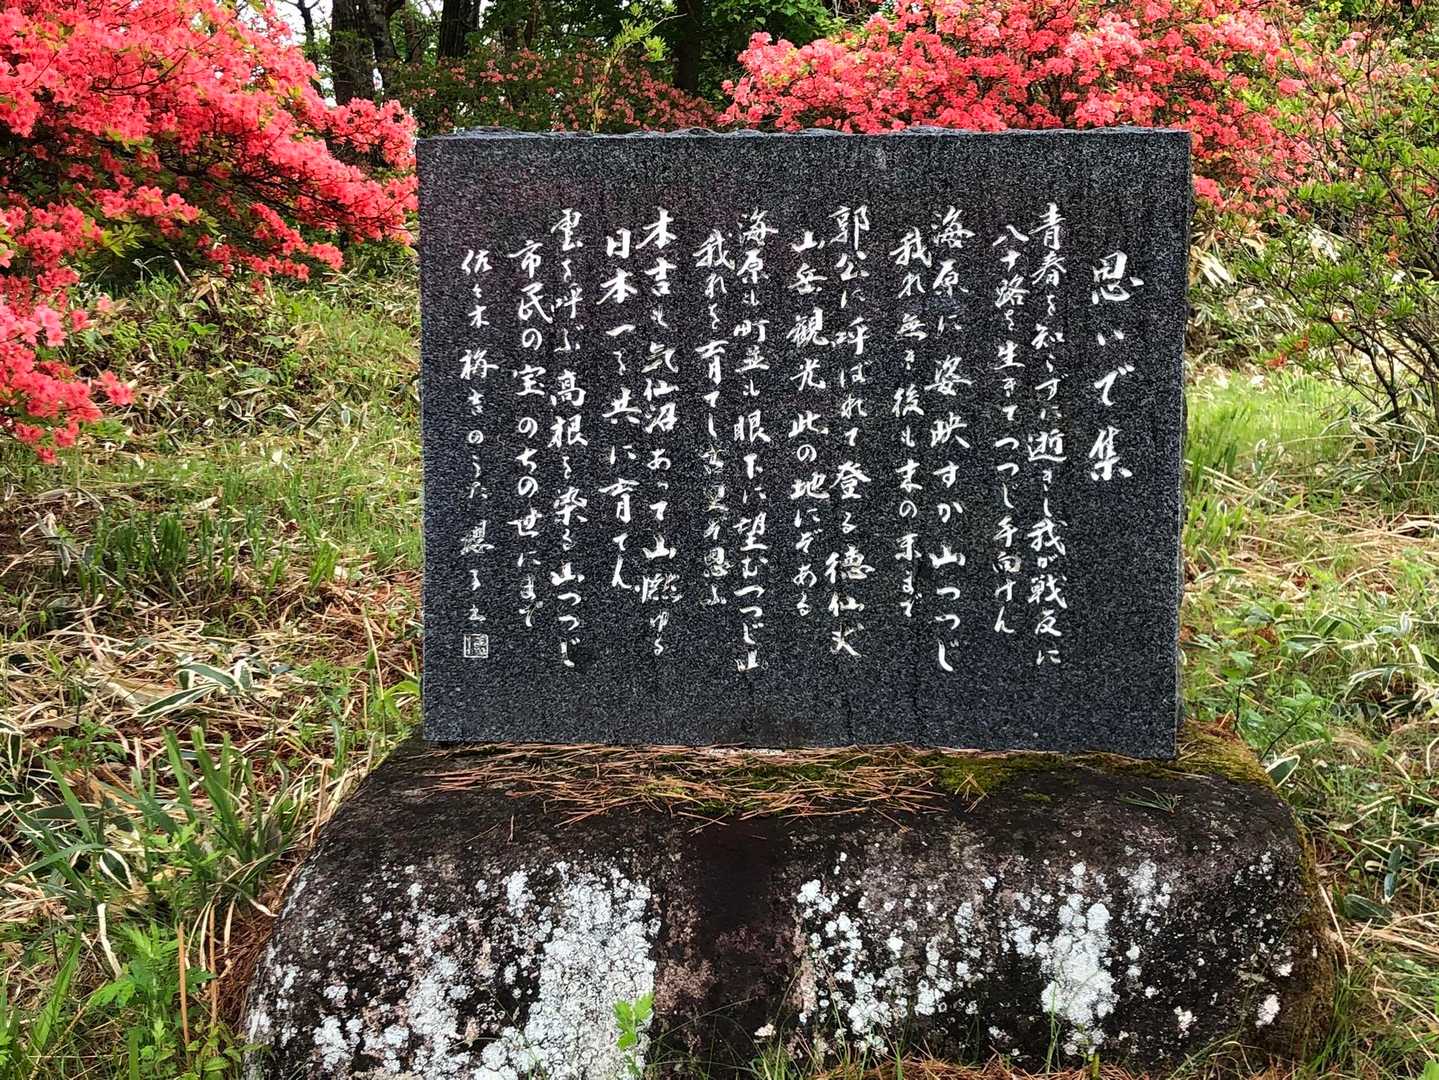 思いで集
青春を知らずに逝きし我が戦友に
八十路を生きてつつじ手向けん
海原に姿映すか山つつじ
我れ無き後も末の末まで
郭公に呼ばれて登る徳仙丈
山岳観光此の地にぞある
海原も町並も眼下に望むつつじ
我れを育てし 思ふ
本吉も気仙沼あって山燃ゆる
日本一を共に育てん
雲を呼ぶ高根を染る山つつじ
市民の宝のちの世にまで
佐々木 吉のうた